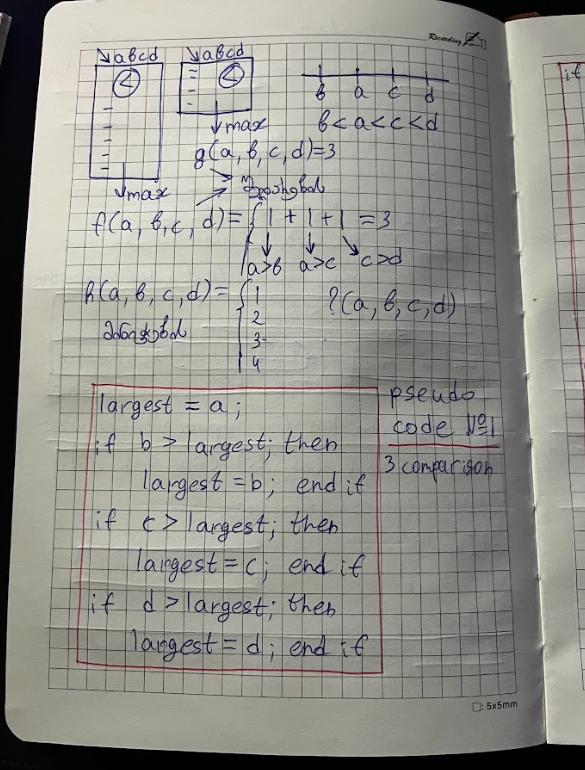 Recording
abcd
abcd
<
<
b a c d
max
b<a<c<d
g(a, b, c, d)=3
max
f(a, b, c, d)= { 1 + 1 + 1 = 3
a>b a>c c>d
h(a, b, c, d)= { 1
?(a, b, c, d)
2
3
4
largest = a;
if b > largest; then
largest = b; end if
if c > largest; then
largest = c; end if
if d > largest; then
largest = d; end if
pseudo
code №1
3 comparison
if
□: 5x5mm